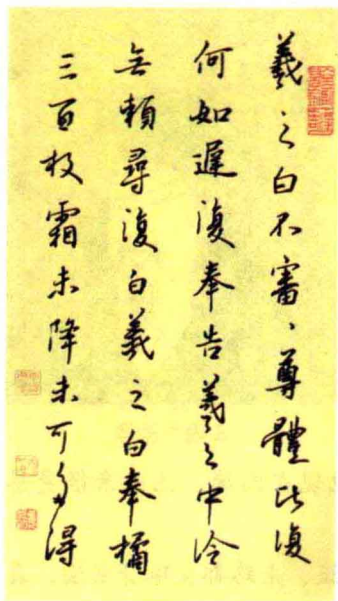 羲之白不審、尊體比復
何如遲復奉告羲之中冷
無賴尋復白羲之白奉橘
三百枚霜未降未可多得